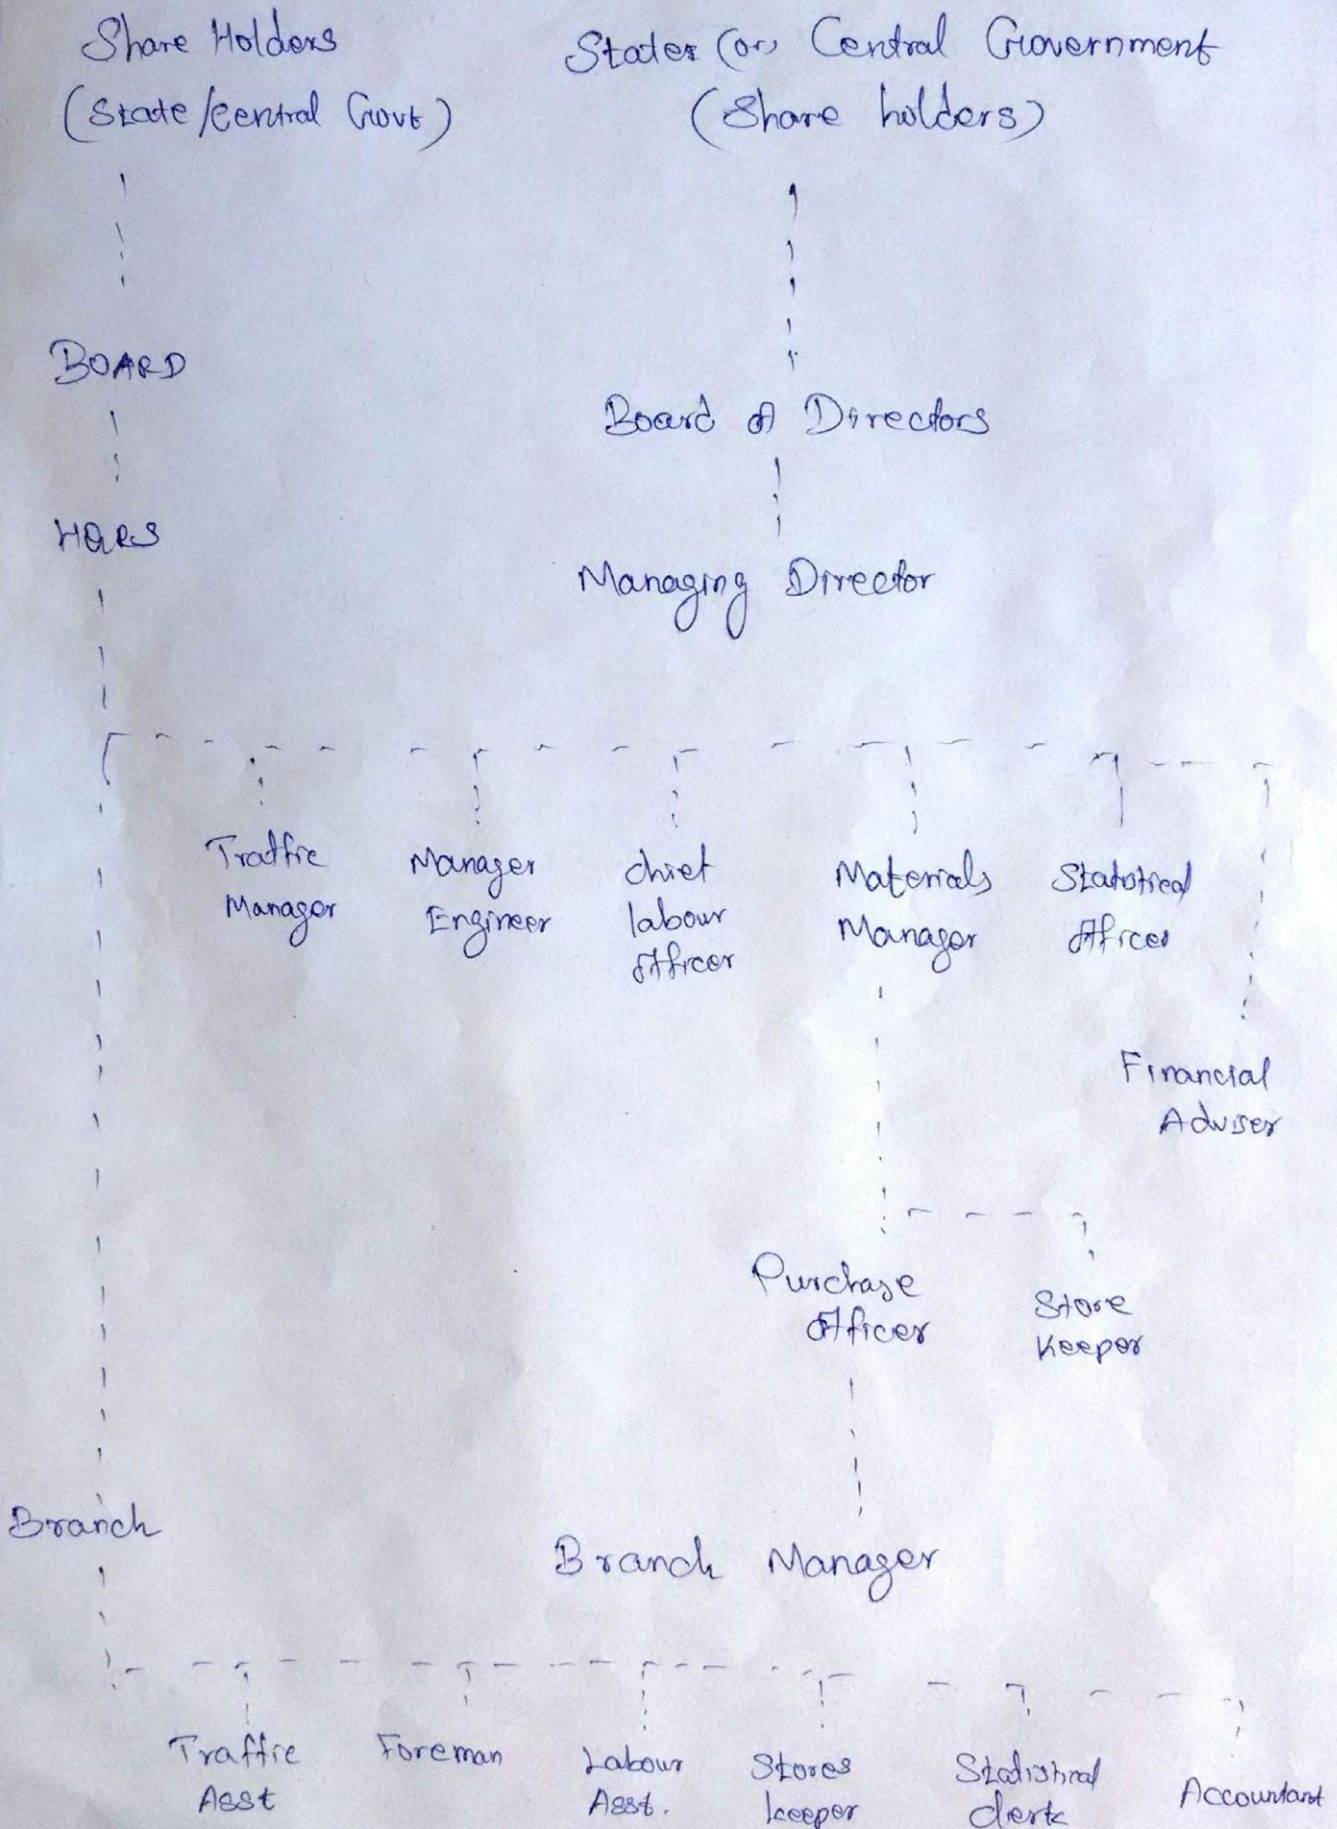 Share Holders
States (or) Central Government
(State/Central Govt)
(Share holders)
BOARD
Board of Directors
HQRS
Managing Director
Traffic
Manager
Manager
Engineer
Chief
labour
Officer
Materials
Manager
Statistical
Officer
Financial
Adviser
Purchase
Officer
Store
Keeper
Branch
Branch Manager
Traffic
Asst
Foreman
Labour
Asst.
Stores
keeper
Statistical
clerk
Accountant